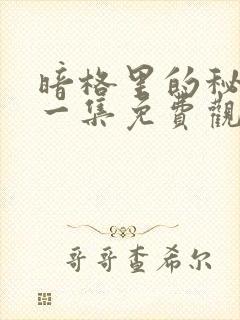 暗格里的秘
一集免費觀
哥哥查希尔